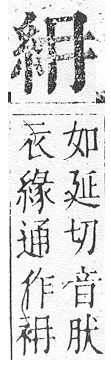 如延切音肰
衣緣通作袡